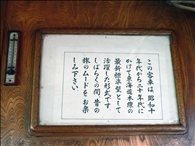 この客車は、昭和十
年代から二十年代に
かけて東海道本線の
最新標準型として
活躍した形式です。
しばらくの間、昔の
旅のムードをお楽
しみ下さい。